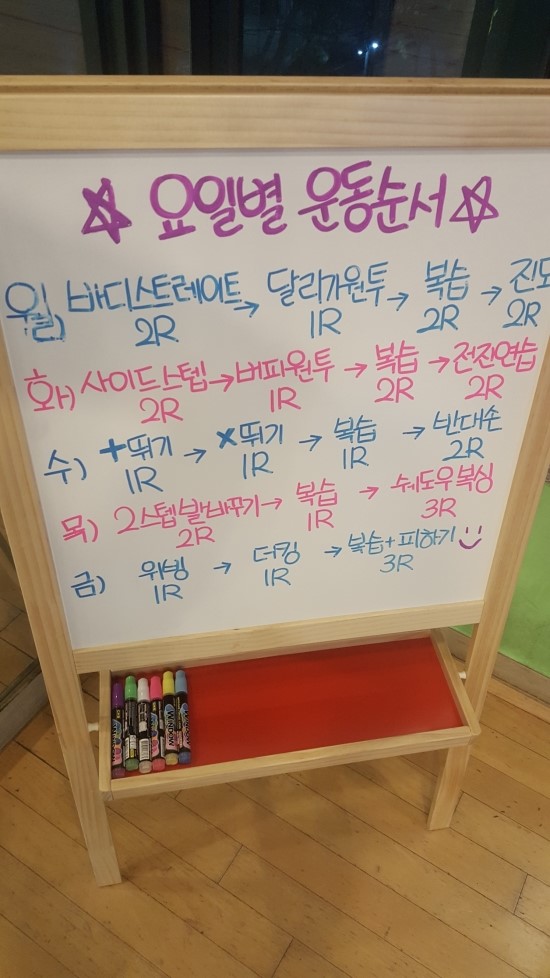 ☆ 요일별 운동순서 ☆
월) 바디스트레이트 → 달리기원투 → 복습 → 진도
2R 1R 2R 2R
화) 사이드스텝 → 버피원투 → 복습 → 전진연습
2R 1R 2R 2R
수) +뛰기 → ×뛰기 → 복습 → 반대손
1R 1R 1R 2R
목) 2스텝발바꾸기 → 복습 → 쉐도우복싱
2R 1R 3R
금) 위빙 → 더킹 → 복습+피하기
1R 1R 3R
WINDOW